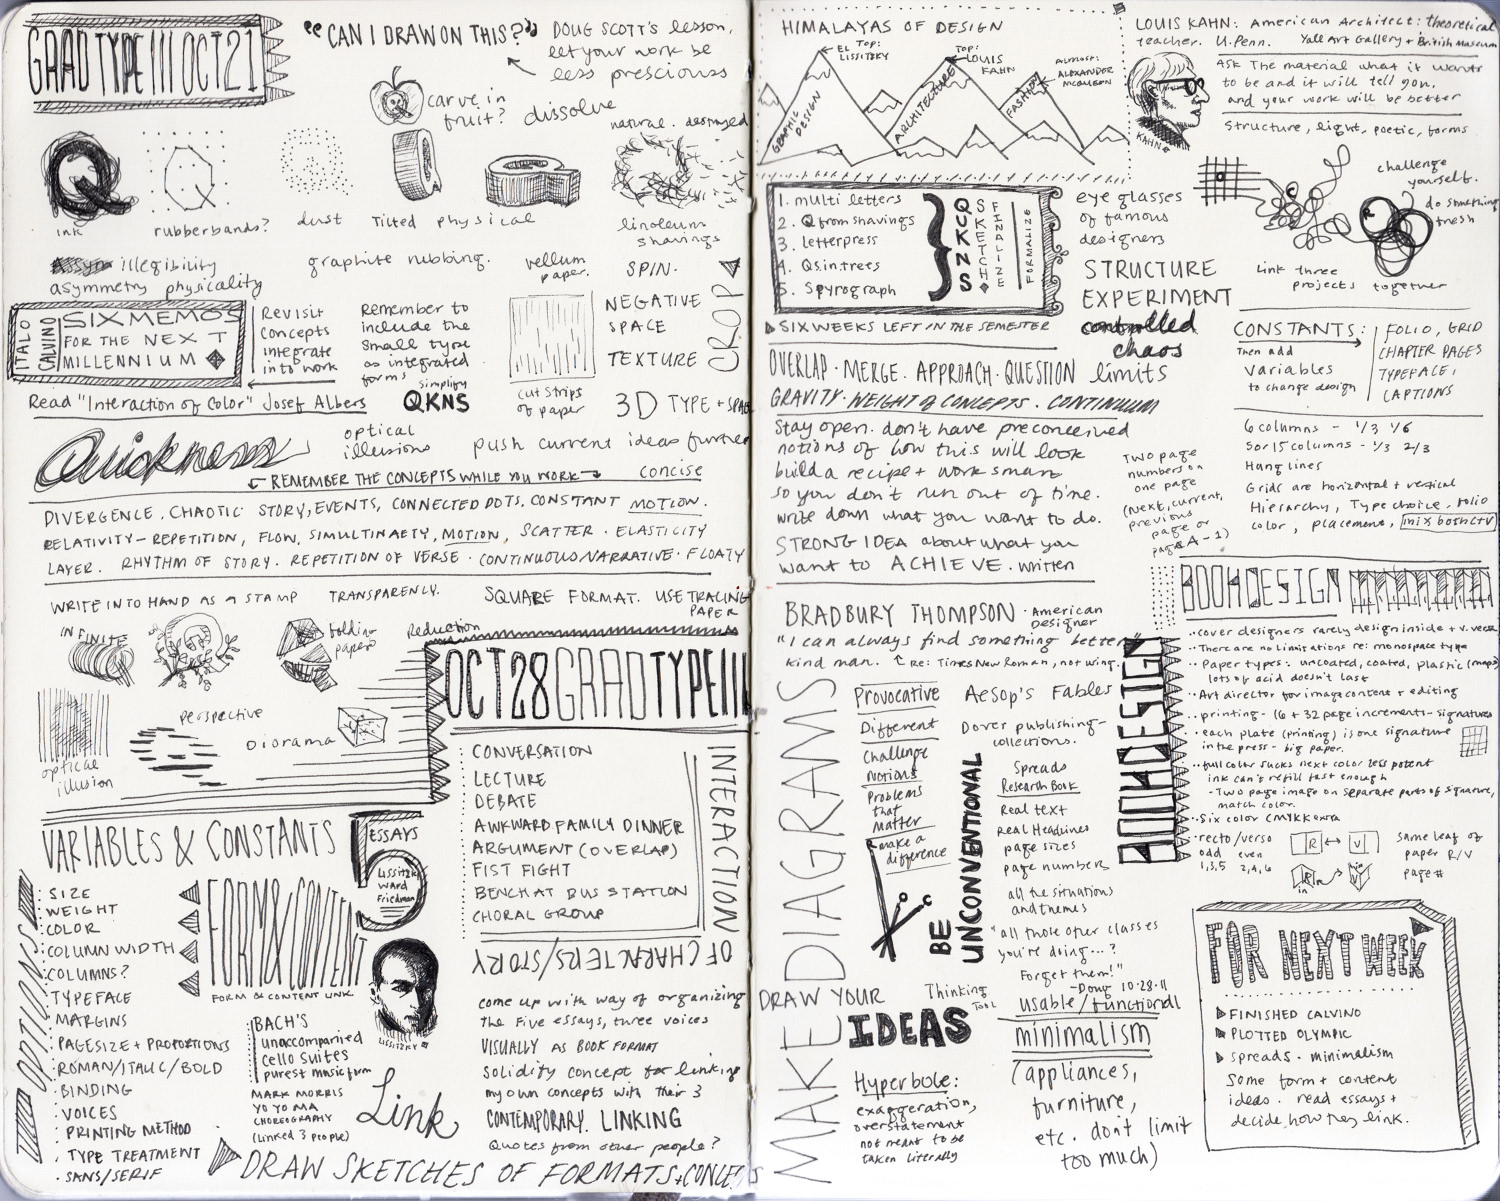 GRADTYPE III OCT 21
"CAN I DRAW ON THIS?"
DOUG SCOTT'S lesson,
let your work be
less prescious
carve in
fruit?
dissolve
natural. destroyed
ink
rubberbands?
dust
Tilted
physical
linoleum
shavings
illegibility
asymmetry physicality
graphite rubbing.
vellum
paper.
SPIN.
CROP
ITALO
CALVINO
SIX MEMOS
FOR THE NEXT
MILLENNIUM
Revisit
Concepts
integrate
into work
Remember to
include the
small type
as integrated
forms
Simplify
QKNS
cut strips
of paper
NEGATIVE
SPACE
TEXTURE
3D TYPE + SPACE
Read "Interaction of Color" Josef Albers
Quickness
optical
illusions
push current ideas further
REMEMBER THE CONCEPTS WHILE YOU WORK
concise
DIVERGENCE. CHAOTIC STORY, EVENTS, CONNECTED DOTS. CONSTANT MOTION.
RELATIVITY - REPETITION, FLOW, SIMULTINAETY, MOTION, SCATTER. ELASTICITY
LAYER. RHYTHM OF STORY. REPETITION OF VERSE. CONTINUOUS NARRATIVE. FLOATY
WRITE INTO HAND AS A STAMP
TRANSPARENCY.
SQUARE FORMAT. USE TRACING
PAPER
INFINITE
folding
paper
Reduction
optical
illusion
perspective
Diorama
OCT 28 GRADTYPE III
CONVERSATION
LECTURE
DEBATE
AWKWARD FAMILY DINNER
ARGUMENT (OVERLAP)
FIST FIGHT
BENCH AT BUS STATION
CHORAL GROUP
INTERACTION
OF CHARACTERS/STORY
VARIABLES & CONSTANTS
5
ESSAYS
Lissitzky
Ward
Friedman
OPTIONS
SIZE
WEIGHT
COLOR
COLUMN WIDTH
COLUMNS?
TYPEFACE
MARGINS
PAGESIZE + PROPORTIONS
ROMAN/ITALIC/BOLD
BINDING
VOICES
PRINTING METHOD
TYPE TREATMENT
SANS/SERIF
FORM & CONTENT
FORM & CONTENT LINK
LISSITZKY
BACH'S
unaccompanied
cello suites
purest music form
MARK MORRIS
YO YO MA
CHOREOGRAPHY
(Linked 3 people)
Link
come up with way of organizing
The Five essays, three voices
VISUALLY AS BOOK FORMAT
Solidify concept for linking
my own concepts with their 3
CONTEMPORARY. LINKING
Quotes from other people?
DRAW SKETCHES OF FORMATS + CONCEPTS
HIMALAYAS OF DESIGN
EL TOP:
LISSITZKY
TOP:
LOUIS
KAHN
ALMOST:
ALEXANDER
MCQUEEN
GRAPHIC
DESIGN
ARCHITECTURE
FASHION
LOUIS KAHN: American Architect: theoretical
teacher. U.Penn. Yall Art Gallery + British Museum
Ask The material what it wants
to be and it will tell you.
and your work will be better
KAHN
Structure, light, poetic, forms
challenge
yourself.
do something
fresh
Link three
projects together
1. multi letters
2. Q from shavings
3. letterpress
4. Qs in trees
5. Spyrograph
QUKNS
SKETCH
FINALIZE
FORMALIZE
SIX WEEKS LEFT IN THE SEMESTER
eye glasses
of famous
designers
STRUCTURE
EXPERIMENT
controlled
chaos
OVERLAP. MERGE. APPROACH. QUESTION limits
GRAVITY. WEIGHT of CONCEPTS. CONTINUUM
Stay open. don't have preconceived
notions of how this will look
build a recipe + work smart
so you don't run out of time.
write down what you want to do.
STRONG IDEA about what you
want to ACHIEVE. written
CONSTANTS:
Then add
Variables
to change design
FOLIO, GRID
CHAPTER PAGES
TYPEFACE,
CAPTIONS
6 columns - 1/3 1/6
5 or 15 columns - 1/3 2/3
Hanglines
Grids are horizontal + vertical
Hierarchy, Type choice, folio
color, placement, mix both C+V
Two page
numbers on
one page
(next, current,
previous
page or
page A-1)
BRADBURY THOMPSON
American
Designer
"I can always find something better"
kind man.
re: Times New Roman, not wing.
MAKE DIAGRAMS
Provocative
Different
Challenge
Notions
Problems
that
matter
make a
difference
Aesop's Fables
Dover publishing-
collections.
Spreads
Research Book
Real text
Real Headlines
page sizes
page numbers
all the situations
and themes
"all those other classes
you're doing...?
Forget them!"
-Doug 10.28.11
BE
UNCONVENTIONAL
DRAW YOUR
IDEAS
Thinking
Tool
usable/functional
minimalism
(appliances,
furniture,
etc. don't limit
too much)
Hyperbole:
exaggeration,
overstatement
not meant to be
taken literally
BOOK DESIGN
BOOK DESIGN
cover designers rarely design inside + v. versa
There are no limitations re: monospace type
Paper types: uncoated, coated, plastic (maps)
lots of acid doesn't last
Art director for image content + editing
printing - 16 + 32 page increments - signatures
each plate (printing) is one signature
in the press - big paper.
full color sucks next color less potent
ink can't refill fast enough
- Two page image on separate parts of signature,
match color.
Six color CMYK extra
recto/verso
odd even
1,3,5 2,4,6
R V
in
Same leaf of
paper R/V
page #
FOR NEXT WEEK
FINISHED CALVINO
PLOTTED OLYMPIC
spreads. minimalism
Some form + content
ideas. read essays +
decide how they link.